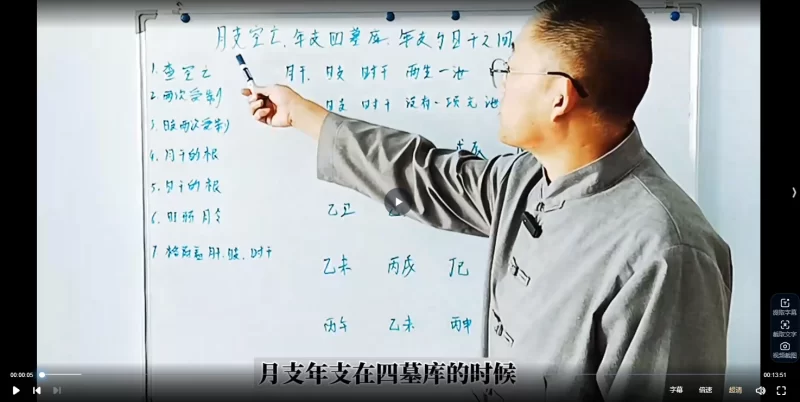 月支空亡、年支四墓库、年支与日干之间
1. 查空亡 月干、日支 时干 两生一泄
2. 两次受制 日支 时干 没有一项克泄
3. 日支两次受制
4. 月干的根
5. 日干的根
乙丑
6. 旺弱 月令
7. 格局看 月干、日支、时干
乙未 丙戌 丁巳
丙午 乙未 丙申
提取字幕
截取文字
视频截图
月支年支在四墓库的时候
00:00:05
00:13:51
字幕 倍速 超清